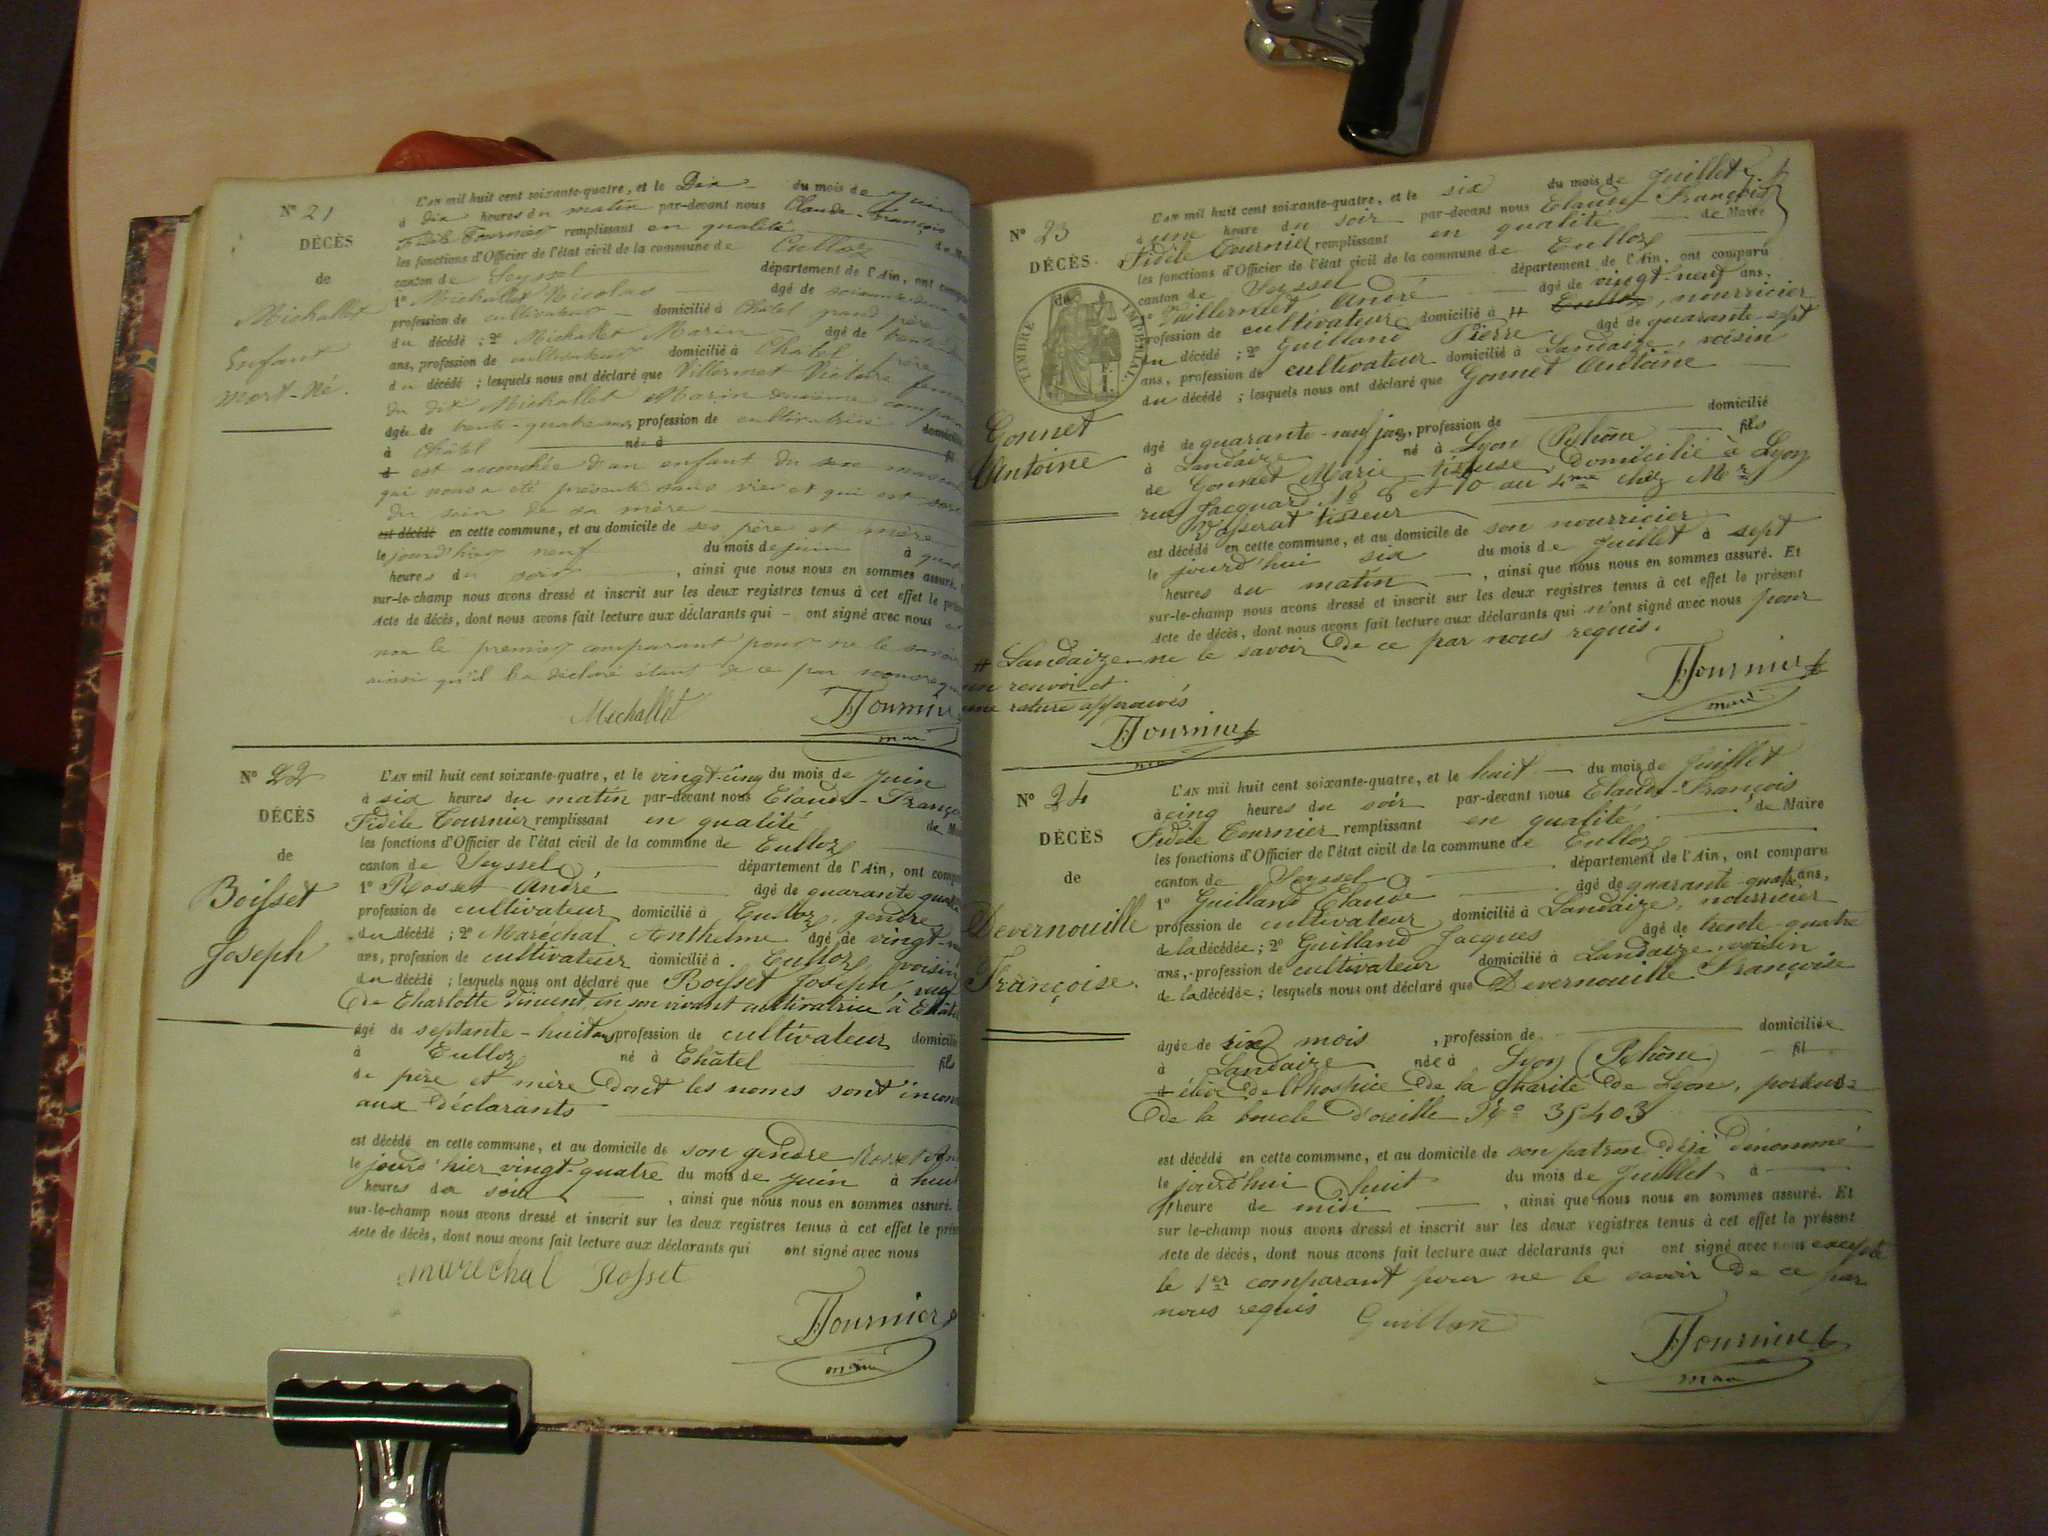 N° 21
DÉCÈS
de
Michallet
Enfant
mort-né.
L'AN mil huit cent soixante-quatre, et le Dix du mois de juin
à dix heures du matin par-devant nous Claude-François
Fidèle Tournier remplissant en qualité de
les fonctions d'Officier de l'état civil de la commune de Culloz
canton de Seyssel département de l'Ain, ont
1° Michallet Nicolas âgé de
profession de cultivateur domicilié à Châtel grand père
du décédé ; 2° Michallet Marin âgé de trente
ans, profession de cultivateur domicilié à Châtel, père
du décédé ; lesquels nous ont déclaré que Villermet Victoire
du dit Michallet Marin deuxième
âgée de trente-quatre ans, profession de cultivatrice
à Châtel né à
est accouchée d'un enfant du sexe
qui nous a été présenté sans vie et qui est
du sein de sa mère
est décédé en cette commune, et au domicile de ses père et mère
le jourd'hier neuf du mois de juin à
heures du soir, ainsi que nous nous en sommes assuré.
sur-le-champ nous avons dressé et inscrit sur les deux registres tenus à cet effet le
Acte de décès, dont nous avons fait lecture aux déclarants qui ont signé avec nous
non le premier comparant pour ne le savoir
ainsi qu'il l'a déclaré étant de ce par nous
Michallet FTournier
maire
N° 22
DÉCÈS
de
Boisset
Joseph
L'AN mil huit cent soixante-quatre, et le vingt-cinq du mois de juin
à six heures du matin par-devant nous Claude-François
Fidèle Tournier remplissant en qualité de
les fonctions d'Officier de l'état civil de la commune de Culloz
canton de Seyssel département de l'Ain, ont
1° Rosset André âgé de quarante
profession de cultivateur domicilié à Culloz, gendre
du décédé ; 2° Maréchal Anthelme âgé de vingt
ans, profession de cultivateur domicilié à Culloz, voisin
du décédé ; lesquels nous ont déclaré que Boisset Joseph, veuf
de Charlotte Vincent, en son vivant cultivatrice à Châtel
âgé de septante-huit ans, profession de cultivateur
à Culloz né à Châtel fils
de père et mère dont les noms sont
aux déclarants
est décédé en cette commune, et au domicile de son gendre Rosset
le jourd'hier vingt-quatre du mois de juin à
heures du soir, ainsi que nous nous en sommes assuré.
sur-le-champ nous avons dressé et inscrit sur les deux registres tenus à cet effet le
Acte de décès, dont nous avons fait lecture aux déclarants qui ont signé avec nous
Marechal Rosset
FTournier
maire
N° 23
DÉCÈS
de
TIMBRE IMPÉRIAL
Gonnet
Antoine
L'AN mil huit cent soixante-quatre, et le six du mois de Juillet
à une heure du soir par-devant nous Claude-François
Fidèle Tournier remplissant en qualité de Maire
les fonctions d'Officier de l'état civil de la commune de Culloz
canton de Seyssel département de l'Ain, ont comparu
1° Vuillermet André âgé de vingt-neuf ans,
profession de cultivateur domicilié à # Culloz, nourricier
du décédé ; 2° Guilland Pierre âgé de quarante-sept
ans, profession de cultivateur domicilié à Landaize, voisin
du décédé ; lesquels nous ont déclaré que Gonnet Antoine
âgé de quarante-neuf jours, profession de domicilié
à Landaize né à Lyon (Rhône fils
de Gonnet Marie tisseuse, domicilié à Lyon
rue Jacquard, N° 8 et 10 au 4me chez Mr
tisseur
est décédé en cette commune, et au domicile de son nourricier
le jourd'hui six du mois de Juillet à sept
heures du matin, ainsi que nous nous en sommes assuré. Et
sur-le-champ nous avons dressé et inscrit sur les deux registres tenus à cet effet le présent
Acte de décès, dont nous avons fait lecture aux déclarants qui n'ont signé avec nous pour
ne le savoir de ce par nous requis.
# Landaize
un renvoi et
une rature approuvés
FTournier
FTournier
maire
N° 24
DÉCÈS
de
Devernouille
Françoise.
L'AN mil huit cent soixante-quatre, et le huit du mois de Juillet
à cinq heures du soir par-devant nous Claude-François
Fidèle Tournier remplissant en qualité de Maire
les fonctions d'Officier de l'état civil de la commune de Culloz
canton de Seyssel département de l'Ain, ont comparu
1° Guilland Claude âgé de quarante-quatre ans,
profession de cultivateur domicilié à Landaize, nourricier
de la décédée ; 2° Guilland Jacques âgé de trente-quatre
ans, profession de cultivateur domicilié à Landaize voisin
de la décédée ; lesquels nous ont déclaré que Devernouille Françoise
âgée de six mois, profession de domiciliée
à Landaize née à Lyon (Rhône) fil
élève de l'hospice de la Charité de Lyon, porteuse
de la boucle d'oreille N° 35403
est décédé en cette commune, et au domicile de son patron déjà dénommé
le jourd'hui huit du mois de Juillet à
heure de midi, ainsi que nous nous en sommes assuré. Et
sur-le-champ nous avons dressé et inscrit sur les deux registres tenus à cet effet le présent
Acte de décès, dont nous avons fait lecture aux déclarants qui ont signé avec nous excepté
le 1er comparant pour ne le savoir de ce par
nous requis Guilland
FTournier
maire